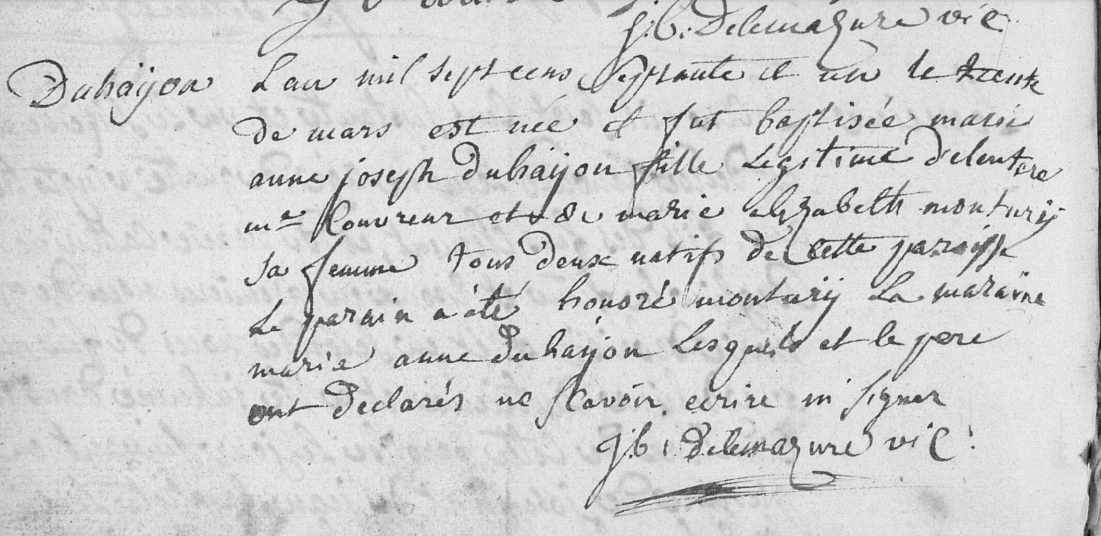 j.b. Delemazure vic
Duhaÿon
L'an mil sept cens septante et un le trente
de mars est née et fut baptisée marie
anne joseph duhaÿon fille Legitime d'
me Couvreur et de marie elizabeth monturÿ
sa femme tous deux natifs de cette paroisse
Le parain a été honoré monturÿ La maraine
marie anne duhaÿon Lesquels et le pere
ont declarés ne sçavoir ecrire ni signer
j.b. delemazure vic.